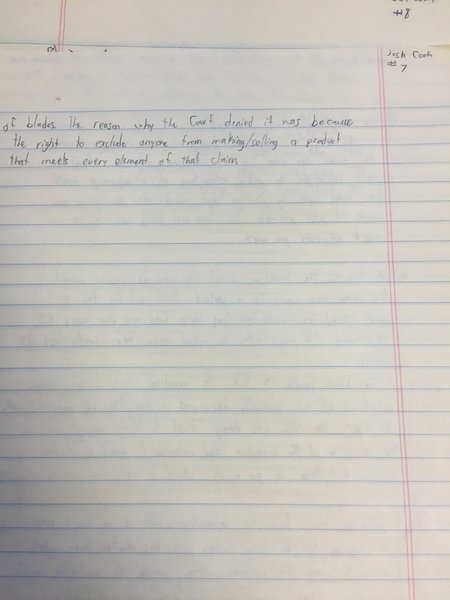 #8
Josh
#7
of blades. The reason why the Court denied it was because
the right to exclude anyone from making/selling a product
that meets every element of that claim.